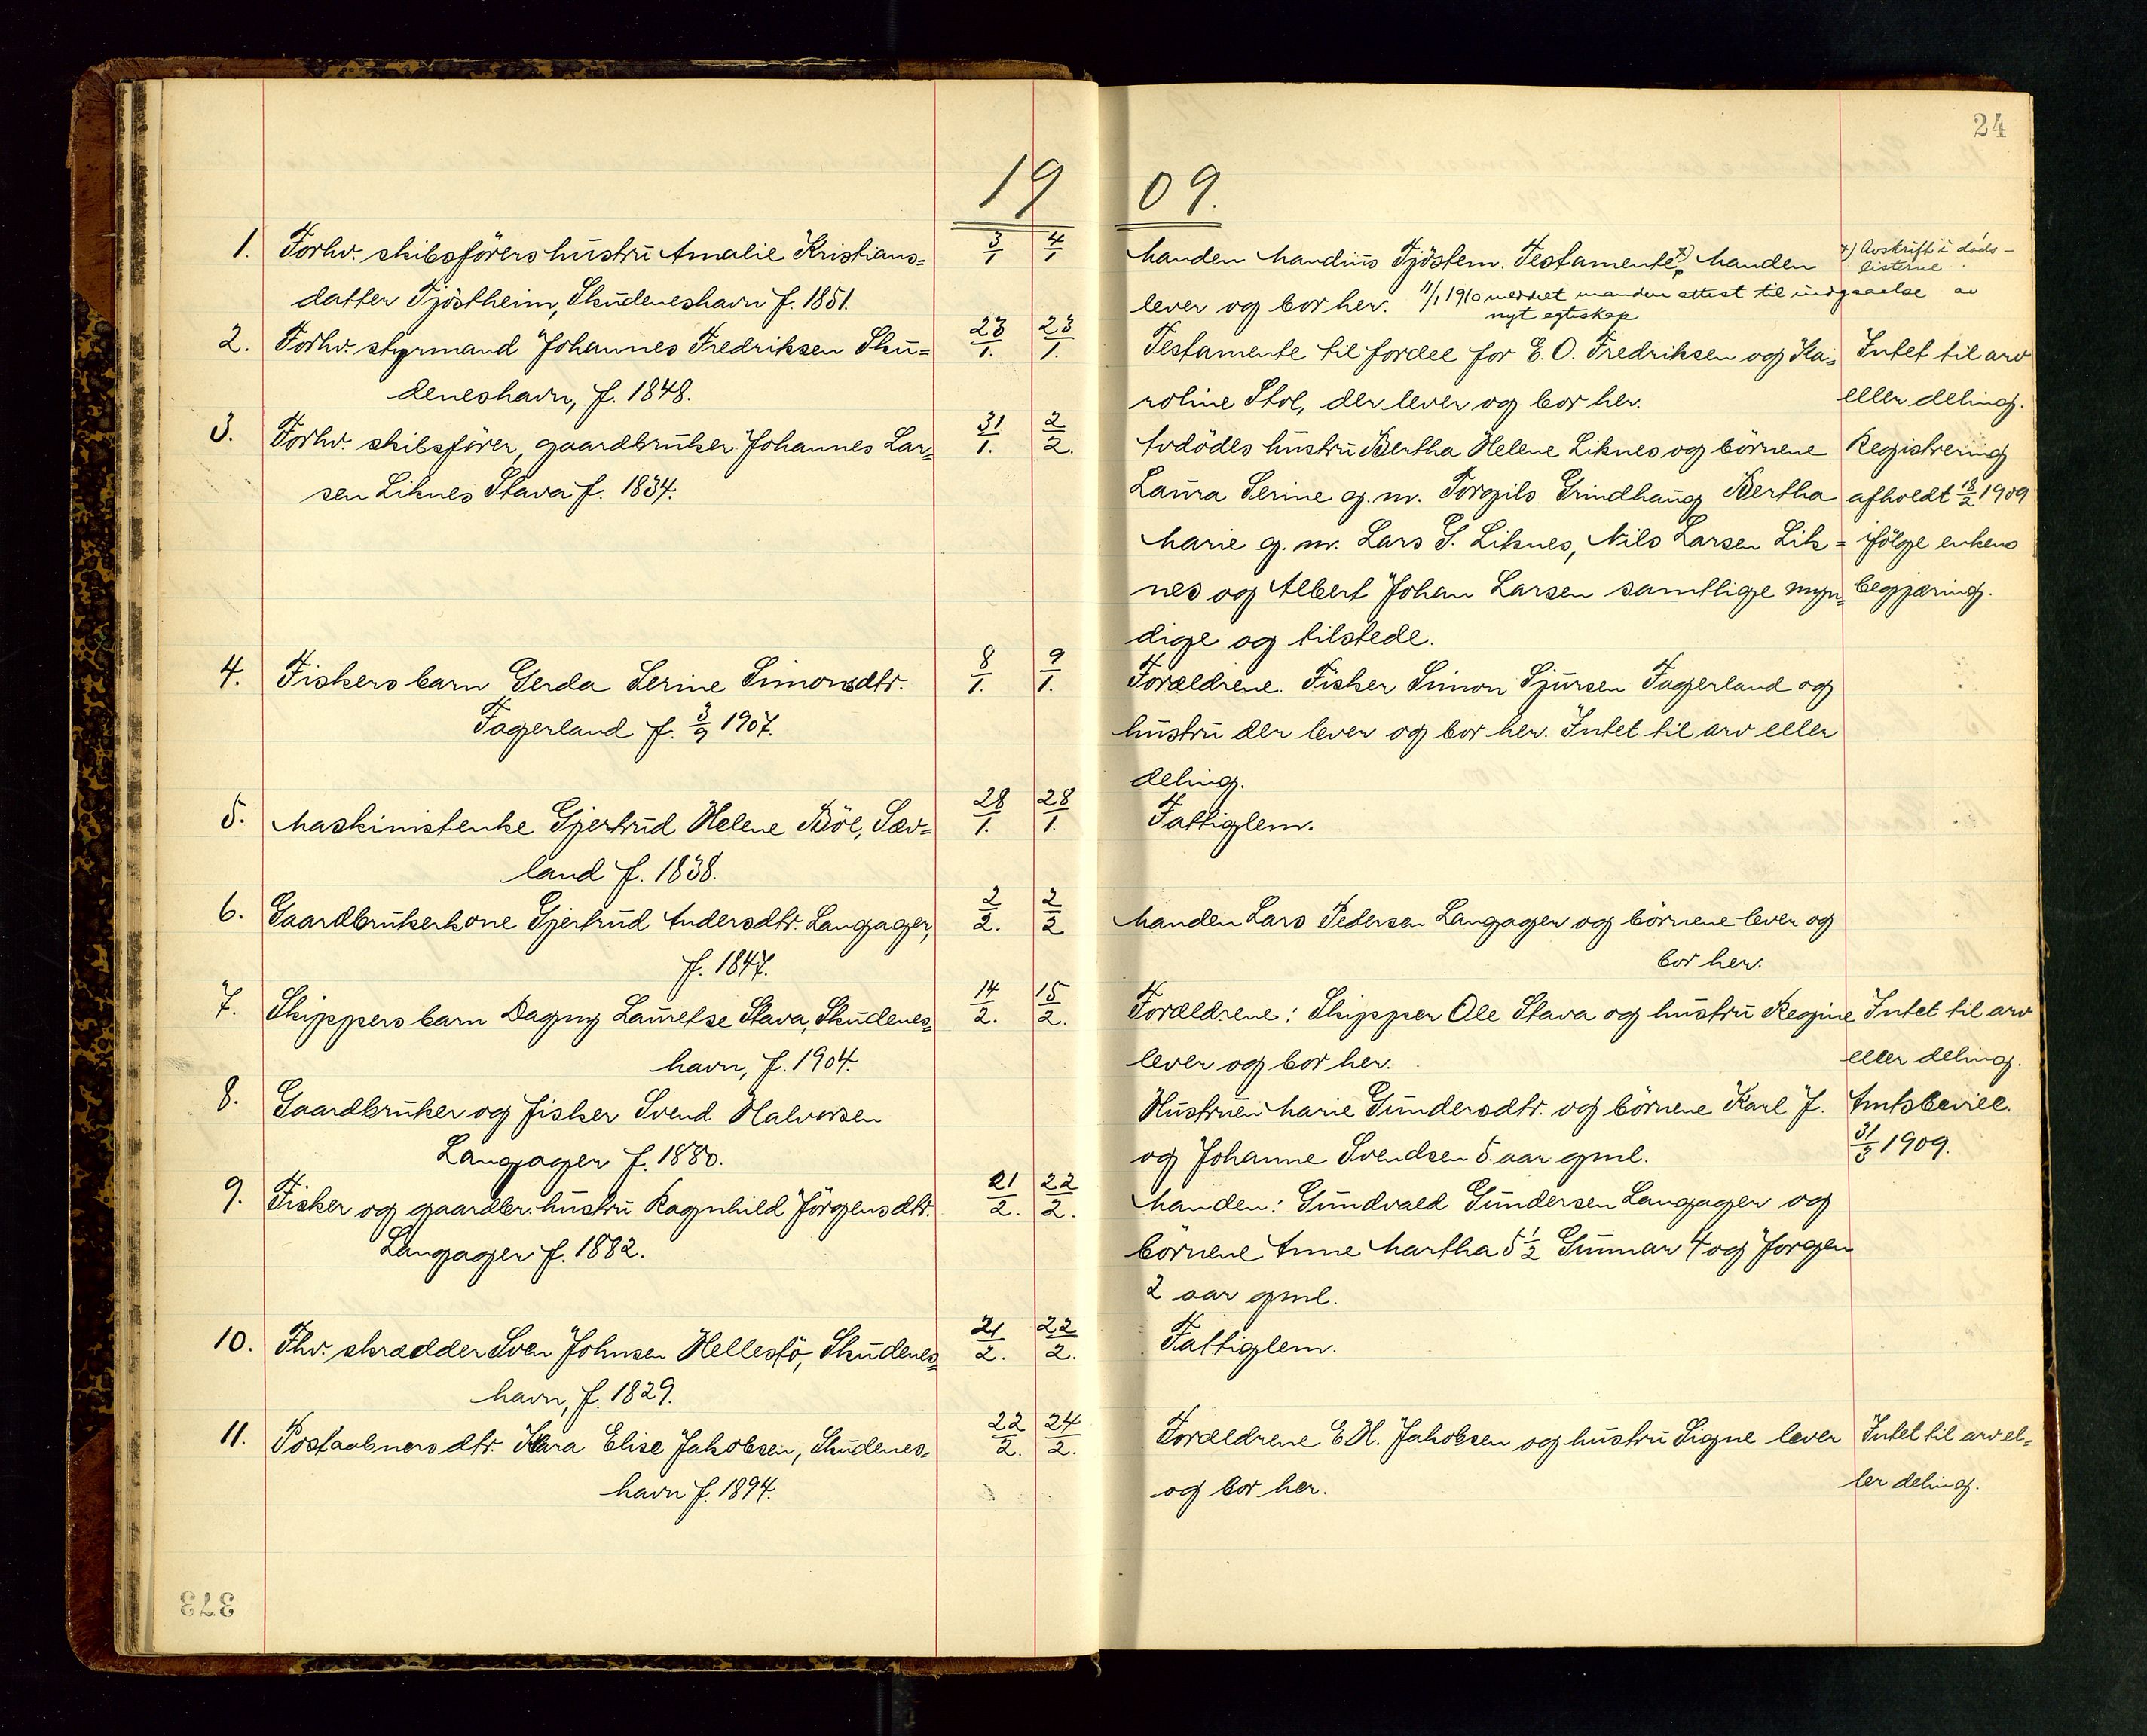 24
1909.
1. Forhv. skibsförers hustru Amalie Kristians= 3/1 4/1 Manden Mandius Tjöstem. Testamente x) Manden x) Avskrift i döds-
listerne.
datter Tjöstheim, Skudeneshavn f. 1851. lever og bor her. 11/1 1910 meddelt manden attest til indgaaelse av
nyt egteskap
2. Forhv. styrmand Johannes Fredriksen Sku= 23/1. 23/1. Testamente til fordel for E. O. Fredriksen og Ka= Intet til arv
deneshavn, f. 1848. roline Stol, der lever og bor her. eller deling.
3. Forhv. skibsförer, gaardbruker Johannes Lar= 31/1. 2/2. Avdödes hustru Bertha Helene Liknes og börnene Registrering
sen Liknes Stava f. 1834. Laura Serine g. m. Torgils Grindhaug Bertha afholdt 18/2 1909
Marie g. m. Lars S. Liknes, Nils Larsen Lik= ifölge enkens
nes og Albert Johan Larsen samtlige myn= begjæring.
dige og tilstede.
4. Fiskers barn Gerda Serine Simonsdtr. 8/1. 9/1. Forældrene. Fisker Simon Sjursen Fagerland og
Fagerland f. 3/9 1907. hustru der lever og bor her. Intet til arv eller
deling.
5. Maskinistenke Gjertrud Helene Böe, Sæv= 28/1. 28/1. Fattiglem.
land f. 1838.
6. Gaardbrukerkone Gjertrud Andersdtr. Langager, 2/2. 2/2 Manden Lars Pedersen Langager og börnene lever og
f. 1847. bor her.
7. Skippers barn Dagny Lauretse Stava, Skudenes= 14/2. 15/2. Forældrene: Skipper Ole Stava og hustru Regine Intet til arv
havn, f. 1904. lever og bor her. eller deling.
8. Gaardbruker og fisker Svend Halvorsen Hustruen Marie Gundersdtr. og börnene Karl J. Amtsbevill.
Langager f. 1880. og Johanne Svendsen 5 aar gml. 31/3 1909.
9. Fisker og gaardbr. hustru Ragnhild Jörgensdtr. 21/2. 22/2. Manden: Gundvald Gundersen Langager og
Langager f. 1882. börnene Anne Martha 5 1/2 Gunnar 4 og Jorgen
2 aar gml.
10. Fhv. skrædder Sven Johnsen Hellestö, Skudenes= 21/2. 22/2. Fattiglem.
havn, f. 1829.
11. Postaabners dtr. Klara Elise Jakobsen, Skudenes= 22/2. 24/2. Forældrene E. H. Jakobsen og hustru Signe lever Intet til arv el=
havn f. 1894. og bor her. ler deling.
373